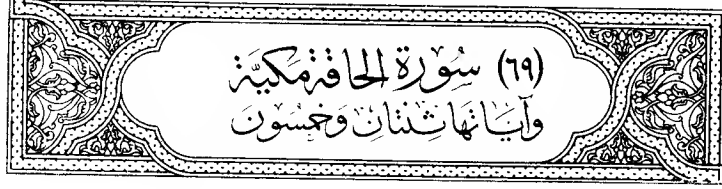 (٦٩) سُورَة الحَاقة مَكيَّة
وَآيَاتهَا ثِنتَانِ وَخَمْسُون